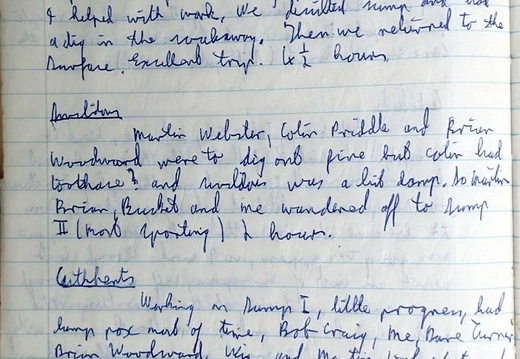 & helped with work, we visited sump and had
a dig in the walkway. Then we returned to the
Surface. Excellent trip. 4½ hours.
Swildons
Martin Webster, Colin Priddle and Brian
Woodward were to dig out five but Colin had
toothache? and swildons was a bit damp. So Martin
Brian, Bucket and me wandered off to Sump
II (most sporting) 2 hours.
Cuthberts
Working on Sump I, little progress, had
lamp pox most of time, Bob Craig, Me, Dave Turner
Brian Woodward, and Martin